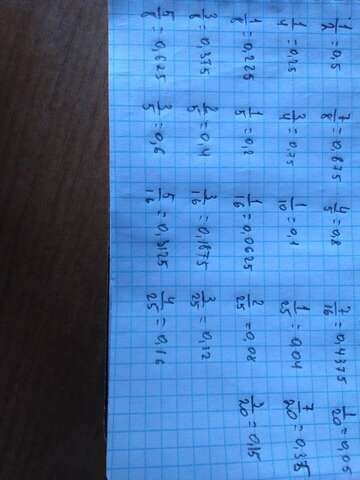 1/2 = 0,5 7/8 = 0,875 4/5 = 0,8 7/16 = 0,4375 1/20 = 0,05
1/4 = 0,25 3/4 = 0,75 1/10 = 0,1 1/25 = 0,04 7/20 = 0,35
1/8 = 0,125 1/5 = 0,2 1/16 = 0,0625 2/25 = 0,08 3/20 = 0,15
3/8 = 0,375 2/5 = 0,4 3/16 = 0,1875 3/25 = 0,12
5/8 = 0,625 3/5 = 0,6 5/16 = 0,3125 4/25 = 0,16